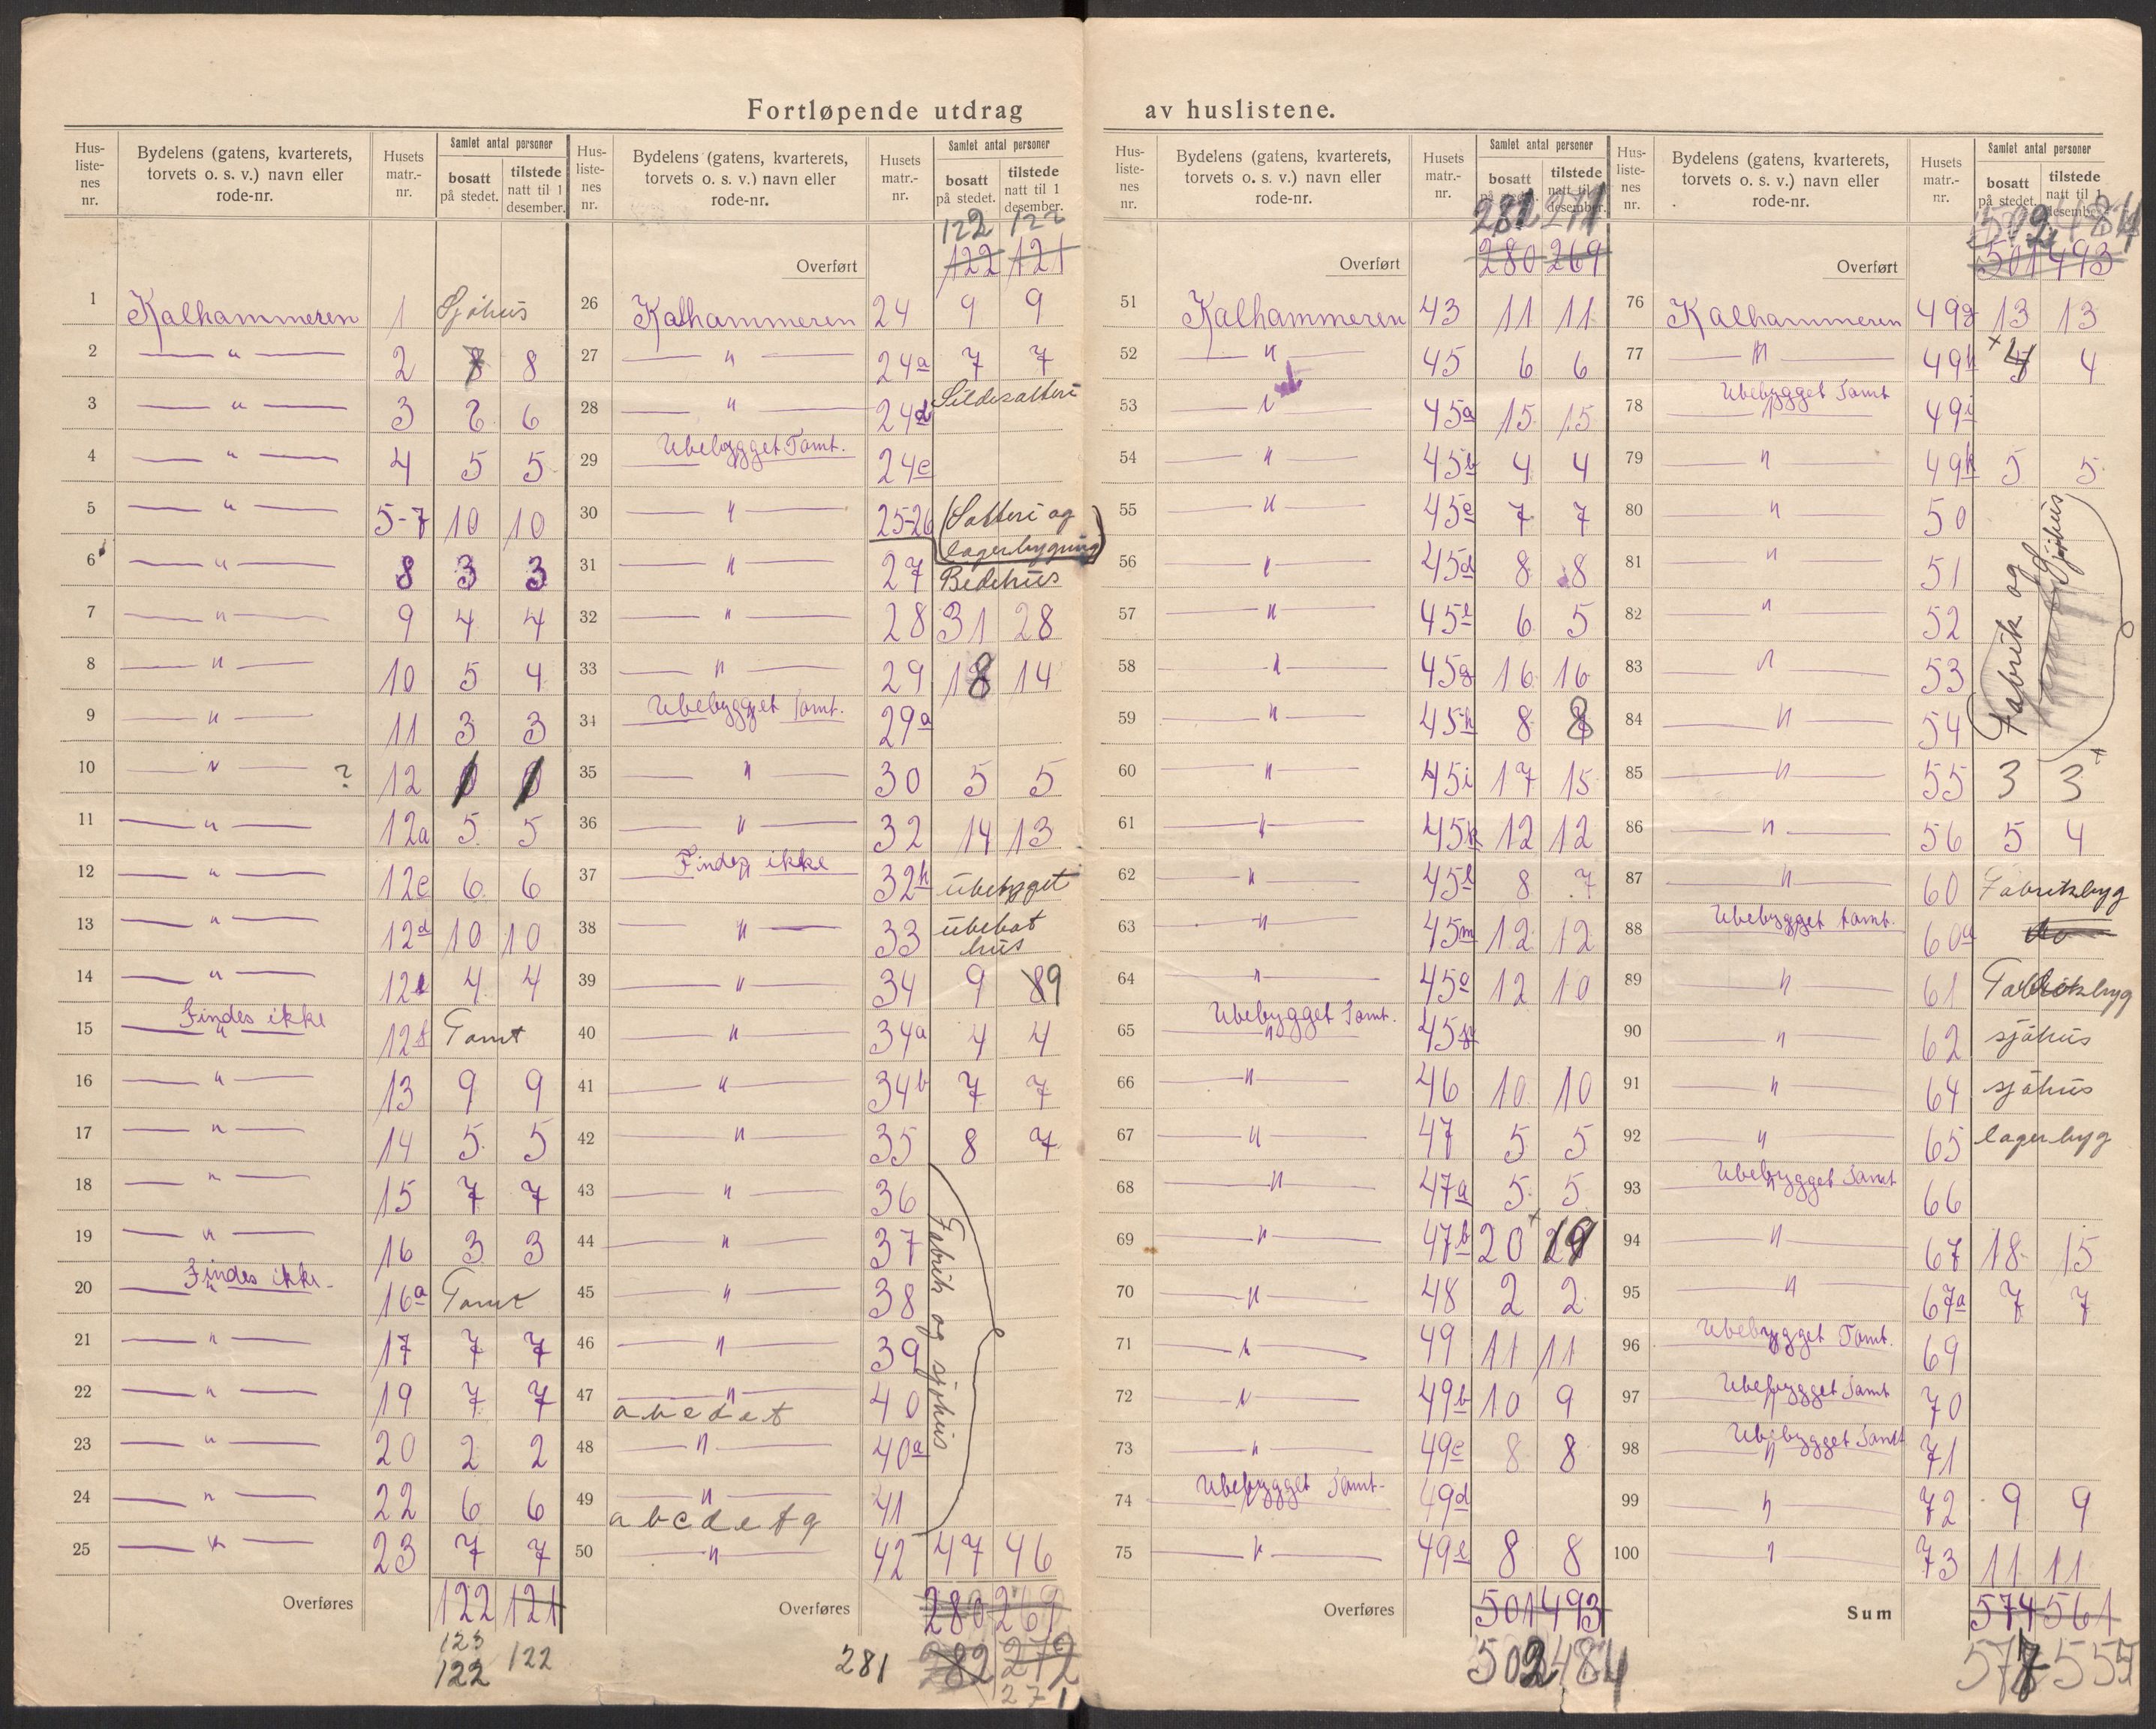 Fortløpende utdrag av huslistene.
Hus-liste-nes nr. | Bydelens (gatens, kvarterets, torvets o. s. v.) navn eller rode-nr. | Husets matr.-nr. | Samlet antal personer bosatt på stedet. | tilstede natt til 1 desember.
1 Kalhammeren 1 Sjøhus
2 — " — 2 8 8
3 — " — 3 6 6
4 — " — 4 5 5
5 — " — 5-7 10 10
6 — " — 8 3 3
7 — " — 9 4 4
8 — " — 10 5 4
9 — " — 11 3 3
10 — " — ? 12
11 — " — 12a 5 5
12 — " — 12c 6 6
13 — " — 12d 10 10
14 — " — 12e 4 4
15 Findes ikke 12f Tomt
16 — " — 13 9 9
17 — " — 14 5 5
18 — " — 15 7 7
19 — " — 16 3 3
20 Findes ikke 16a Tomt
21 — " — 17 7 7
22 — " — 19 7 7
23 — " — 20 2 2
24 — " — 22 6 6
25 — " — 23 7 7
Overføres 122 121
123
122 122
Hus-liste-nes nr. | Bydelens (gatens, kvarterets, torvets o. s. v.) navn eller rode-nr. | Husets matr.-nr. | Samlet antal personer bosatt på stedet. | tilstede natt til 1 desember.
122 122
Overført 122 121
26 Kalhammeren 24 9 9
27 — " — 24a 7 7
28 — " — 24d Sildesalteri
29 Ubebygget Tomt. 24e
30 — " — 25-26 (Salteri og
lagerbygning)
31 — " — 27 Bedehus
32 — " — 28 31 28
33 — " — 29 18 14
34 Ubebygget Tomt. 29a
35 — " — 30 5 5
36 — " — 32 14 13
37 Findes ikke 32h ubebygget
38 — " — 33 ubebot
hus
39 — " — 34 9 89
40 — " — 34a 4 4
41 — " — 34b 7 7
42 — " — 35 8 7
43 — " — 36
44 — " — 37
45 — " — 38
46 — " — 39
Fabrik og sjøhus
47 — " — 40
a b c d e f
48 — " — 40a
49 — " — 41
a b c d e f g
50 — " — 42 47 46
Overføres 280 269
281 282 272
271
Hus-liste-nes nr. | Bydelens (gatens, kvarterets, torvets o. s. v.) navn eller rode-nr. | Husets matr.-nr. | Samlet antal personer bosatt på stedet. | tilstede natt til 1 desember.
281 271
Overført 280 269
51 Kalhammeren 43 11 11
52 — " — 45 6 6
53 — " — 45a 15 15
54 — " — 45b 4 4
55 — " — 45c 7 7
56 — " — 45d 8 8
57 — " — 45e 6 5
58 — " — 45g 16 16
59 — " — 45h 8 8
60 — " — 45i 17 15
61 — " — 45k 12 12
62 — " — 45l 8 7
63 — " — 45m 12 12
64 — " — 45o 12 10
65 Ubebygget Tomt. 45p
66 — " — 46 10 10
67 — " — 47 5 5
68 — " — 47a 5 5
69 — " — 47b 20 19
70 — " — 48 2 2
71 — " — 49 11 11
72 — " — 49b 10 9
73 — " — 49c 8 8
74 Ubebygget Tomt. 49d
75 — " — 49e 8 8
Overføres 501 493
502 484
Hus-liste-nes nr. | Bydelens (gatens, kvarterets, torvets o. s. v.) navn eller rode-nr. | Husets matr.-nr. | Samlet antal personer bosatt på stedet. | tilstede natt til 1 desember.
502 484
Overført 501 493
76 Kalhammeren 49g 13 13
77 — " — 49h 4 4
78 Ubebygget Tomt 49i
79 — " — 49k 5 5
80 — " — 50
81 — " — 51
82 — " — 52
83 — " — 53
84 — " — 54
Fabrik og
Sjøhus
85 — " — 55 3 3
86 — " — 56 5 4
87 — " — 60 Fabrikbyg
88 Ubebygget Tomt. 60a do
89 — " — 61 Fabrikbyg
90 — " — 62 sjøhus
91 — " — 64 sjøhus
92 — " — 65 lagerbyg
93 Ubebygget Tomt 66
94 — " — 67 18 15
95 — " — 67a 7 7
96 Ubebygget Tomt. 69
97 Ubebygget Tomt 70
98 Ubebygget Tomt 71
99 — " — 72 9 9
100 — " — 73 11 11
Sum 574 561
577 555